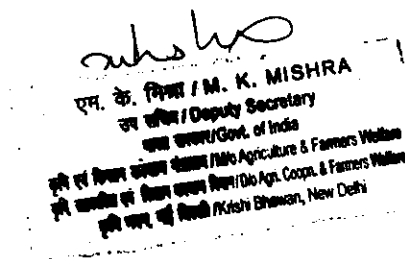 एम. के. मिश्रा / M. K. MISHRA
उप सचिव / Deputy Secretary
भारत सरकार/Govt. of India
कृषि एवं किसान कल्याण मंत्रालय /M/o Agriculture & Farmers Welfare
कृषि सहकारिता एवं किसान कल्याण विभाग/D/o Agri. Coopn. & Farmers Welfare
कृषि भवन, नई दिल्ली /Krishi Bhawan, New Delhi